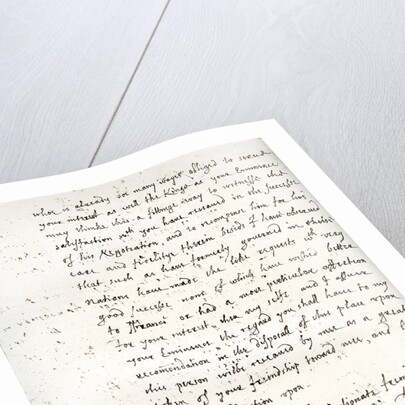 who is already so many ways obliged to
your interest as well the Kings as your Eminence
may thinke this a fitting way to witnesse the
satisfaction wth you have received in the successe
of his Negotiation, and to recompense him for his
care and fidelitye therein besids I have observed
that such as have formerly governed in theise
Nations have made the like requests wth very
good successe none of which have wished better
to france or had a more particular affection
for your interest then my selfe and I assure
your Eminence the regard you shall have to my
recommendation in the disposal of this place upon
this person wilbe received by mee as a great
of your friendship toward mee, and
upon